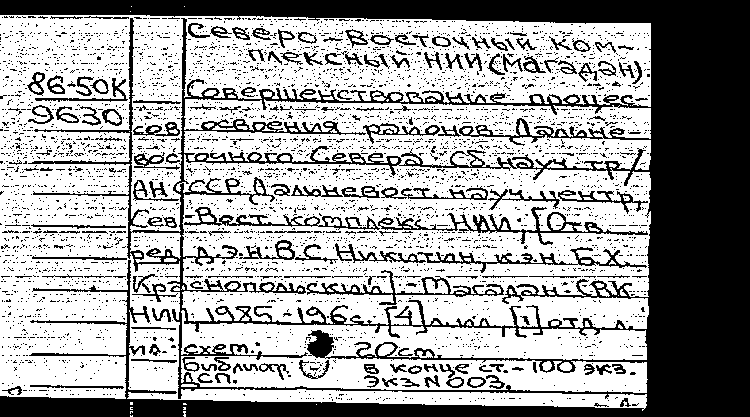 Северо-Восточный ком-
плексный НИИ (Магадан).
86-50К
Совершенствование процес-
9630
сов освоения районов Дальне-
восточного Севера: Сб. науч. тр /
АН СССР. Дальневост. науч. центр,
Сев-Вост. комплекс. НИИ; [Отв.
ред. д.э.н. В.С. Никитин, к.э.н. Б.Х.
Краснопольский]. - Магадан: СВК
НИИ, 1985. - 196 с., [4] л. ил., [1] отд. л.
ил.: схем.; 20 см.
Библиогр. в конце ст. - 100 экз.
ДСП. Экз. N 003.